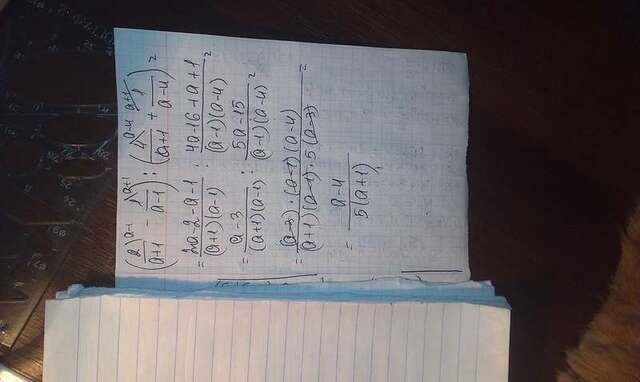 (2/a+1 ^a-1 - 1/a-1 ^a+1) : (4/a+1 ^a-4 + 1/a-4 ^a+1) =
= 2a-2-a-1/(a+1)(a-1) : 4a-16+a+1/(a-1)(a-4) =
= a-3/(a+1)(a-1) : 5a-15/(a-1)(a-4) =
= (a-3)·(a-1)(a-4)/(a+1)(a-1)·5(a-3) =
= a-4/5(a+1)